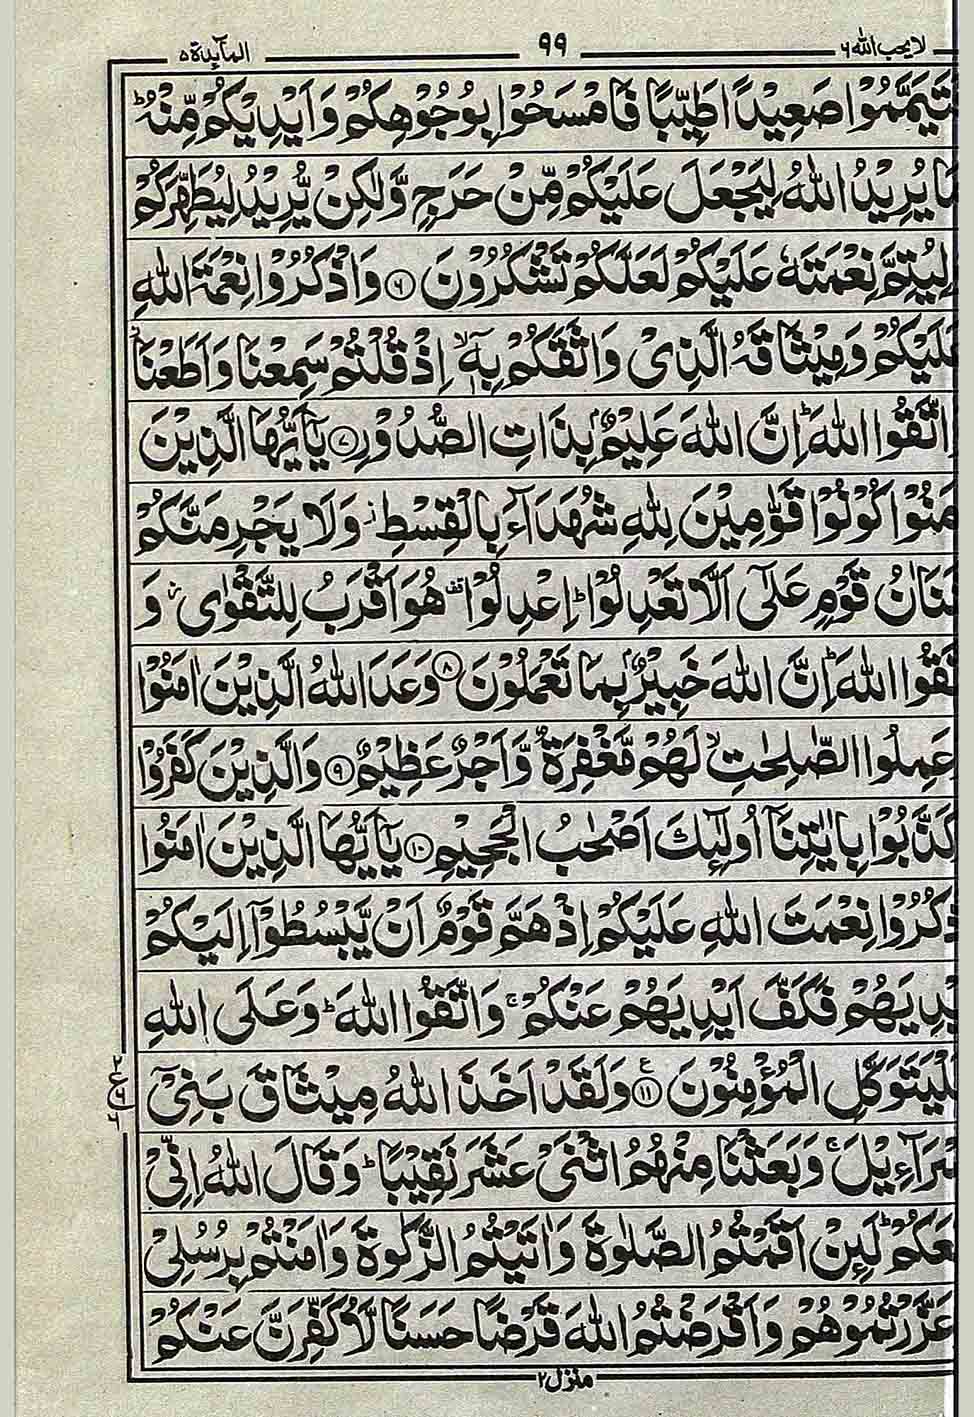 لا يحب الله ٦ ٩٩ المآئدة ٥
تَيَمَّمُوْا صَعِيْدًا طَيِّبًا فَامْسَحُوْا بِوُجُوْهِكُمْ وَاَيْدِيْكُمْ مِّنْهُ ؕ
مَا يُرِيْدُ اللّٰهُ لِيَجْعَلَ عَلَيْكُمْ مِّنْ حَرَجٍ وَّلٰكِنْ يُّرِيْدُ لِيُطَهِّرَكُمْ
لِيُتِمَّ نِعْمَتَهٗ عَلَيْكُمْ لَعَلَّكُمْ تَشْكُرُوْنَ ۝۶ وَاذْكُرُوْا نِعْمَةَ اللّٰهِ
عَلَيْكُمْ وَمِيْثَاقَهُ الَّذِىْ وَاثَقَكُمْ بِهٖۤ ۙ اِذْ قُلْتُمْ سَمِعْنَا وَاَطَعْنَا ۫
اتَّقُوا اللّٰهَ ؕ اِنَّ اللّٰهَ عَلِيْمٌۢ بِذَاتِ الصُّدُوْرِ ۝۷ يٰۤاَيُّهَا الَّذِيْنَ
مَنُوْا كُوْنُوْا قَوّٰمِيْنَ لِلّٰهِ شُهَدَآءَ بِالْقِسْطِ ۫ وَلَا يَجْرِمَنَّكُمْ
شَنَاٰنُ قَوْمٍ عَلٰٓى اَلَّا تَعْدِلُوْا ؕ اِعْدِلُوْا ۟ هُوَ اَقْرَبُ لِلتَّقْوٰى ۫ وَ
تَّقُوا اللّٰهَ ؕ اِنَّ اللّٰهَ خَبِيْرٌۢ بِمَا تَعْمَلُوْنَ ۝۸ وَعَدَ اللّٰهُ الَّذِيْنَ اٰمَنُوْا
عَمِلُوا الصّٰلِحٰتِ ۙ لَهُمْ مَّغْفِرَةٌ وَّاَجْرٌ عَظِيْمٌ ۝۹ وَالَّذِيْنَ كَفَرُوْا
كَذَّبُوْا بِاٰيٰتِنَاۤ اُولٰٓئِكَ اَصْحٰبُ الْجَحِيْمِ ۝۱۰ يٰۤاَيُّهَا الَّذِيْنَ اٰمَنُوا
ذْكُرُوْا نِعْمَتَ اللّٰهِ عَلَيْكُمْ اِذْ هَمَّ قَوْمٌ اَنْ يَّبْسُطُوْۤا اِلَيْكُمْ
يْدِيَهُمْ فَكَفَّ اَيْدِيَهُمْ عَنْكُمْ ۚ وَاتَّقُوا اللّٰهَ ؕ وَعَلَى اللّٰهِ
لْيَتَوَكَّلِ الْمُؤْمِنُوْنَ ۝۱۱ وَلَقَدْ اَخَذَ اللّٰهُ مِيْثَاقَ بَنِىْۤ
سْرَآءِيْلَ ۚ وَبَعَثْنَا مِنْهُمُ اثْنَىْ عَشَرَ نَقِيْبًا ؕ وَقَالَ اللّٰهُ اِنِّىْ
عَكُمْ ؕ لَئِنْ اَقَمْتُمُ الصَّلٰوةَ وَاٰتَيْتُمُ الزَّكٰوةَ وَاٰمَنْتُمْ بِرُسُلِىْ
عَزَّرْتُمُوْهُمْ وَاَقْرَضْتُمُ اللّٰهَ قَرْضًا حَسَنًا لَّاُكَفِّرَنَّ عَنْكُمْ
منزل ٢